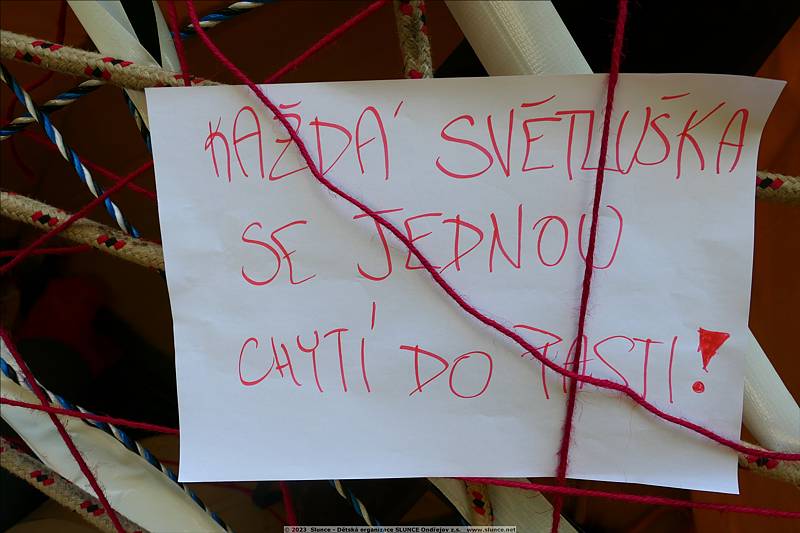 KAŽDÁ SVĚTLUŠKA
SE JEDNOU
CHYTÍ DO PASTI!
© 2023 Slunce - Dětská organizace SLUNCE Ondřejov z.s. www.slunce.net